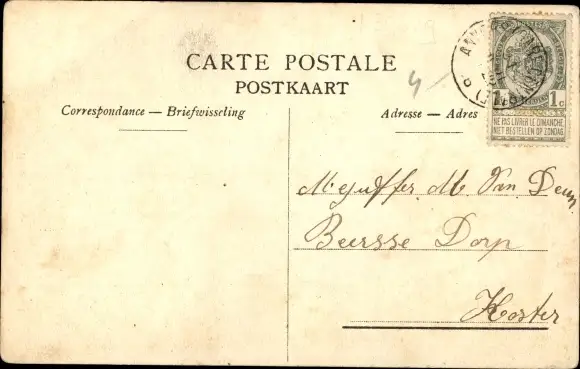 CARTE POSTALE
POSTKAART
Correspondance — Briefwisseling
Adresse — Adres
1 1c
NE PAS LIVRER LE DIMANCHE
NIET BESTELLEN OP ZONDAG
Mejuffer M Van Deun
Beersse Dorp
Koster